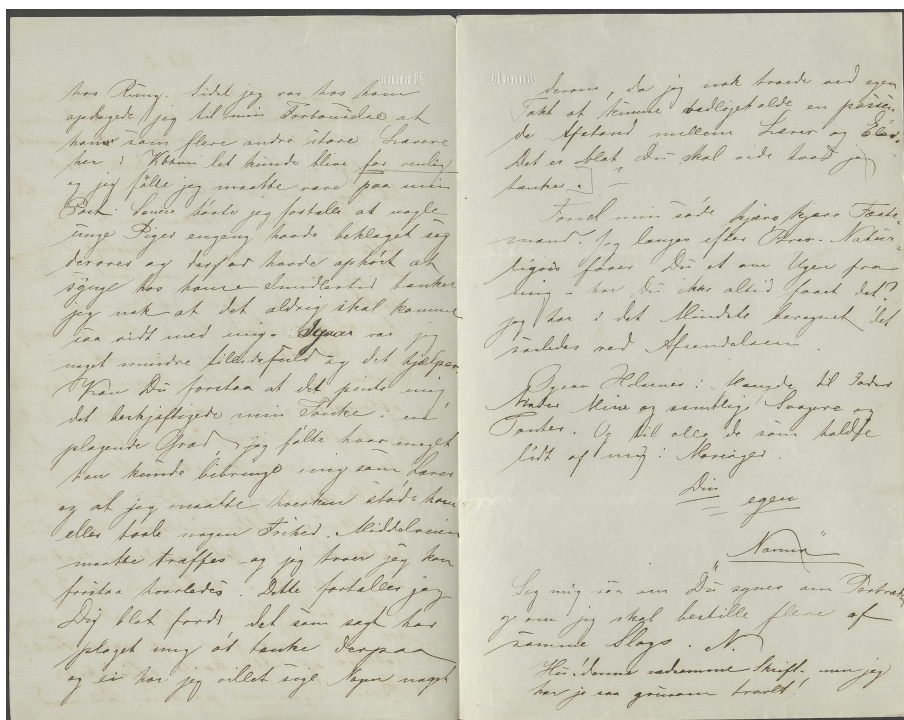 Nanna
hos Rung. Sidst jeg var hos ham
opdagede jeg til min Fortønelse at
han som flere andre store Lærere
her i Kbhvn let kunde blive for venlig
og jeg følte jeg maatte være paa min
Post. Senere hørte jeg fortælle at nogle
unge Piger engang havde beklaget sig
derover og derfor havde ophørt at
synge hos ham. Imidlertid tænker
jeg nok at det aldrig skal komme
saa vidt med mig. var jeg
noget mindre tillidsfuld og det hjælper
Kan Du forstaa at det pinte mig
det beskjæftigede min Tanke i en
plagende Grad, jeg følte hvor meget
han kunde bibringe mig som Lærer
og at jeg maatte hverken støde ham
eller taale nogen Frihed. Middelveien
maatte træffes og jeg troer jeg kan
forstaa hvorledes. Dette fortæller jeg
Dig blot fordi det som sagt har
plaget mig at tænke derpaa
og ei har jeg villet sige Nogen noget
Nanna
derom, da jeg nok troede ved egen
Takt at kunne vedligeholde en passen
de Afstand mellem Lærer og Elev.
Det er blot Du skal vide hvad jeg
tænker.
Farvel min søde kjære kjære Fæste-
mand. Jeg længes efter Brev. Natur-
ligvis faaer Du et om Ugen fra
mig - har Du ikke altid faaet det?
jeg har i det Mindste beregnet det
saaledes ved Afsendelsen.
Hilsener i Mængde til
Mine og samtlige Svogre og
Tanter. Og til alle de som holdte
lidt af mig i Mariager.
Din
egen
Nanna
Sig mig saa om Du synes om Portrættet
og om jeg skal bestille flere af
samme Slags. N.
Hu! denne Skrift, men jeg
har jo saa grusom travlt!